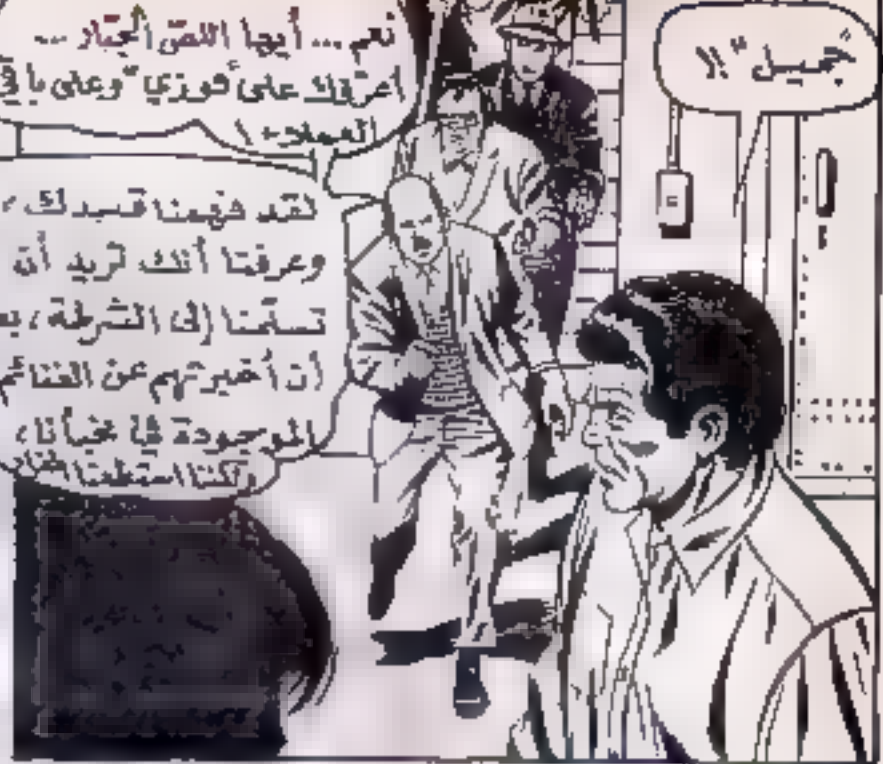 "جميل"!!
نعم ... أيها اللص الجبار ...
اعرفك على "فوزي" وعلى باقي
العملاء!
لقد فهمنا قصدك،
وعرفنا أنك تريد أن
تسلّمنا إلى الشرطة،
أن أخبرتهم عن الغنائم
الموجودة في مخبأنا،
ولكننا استطعنا